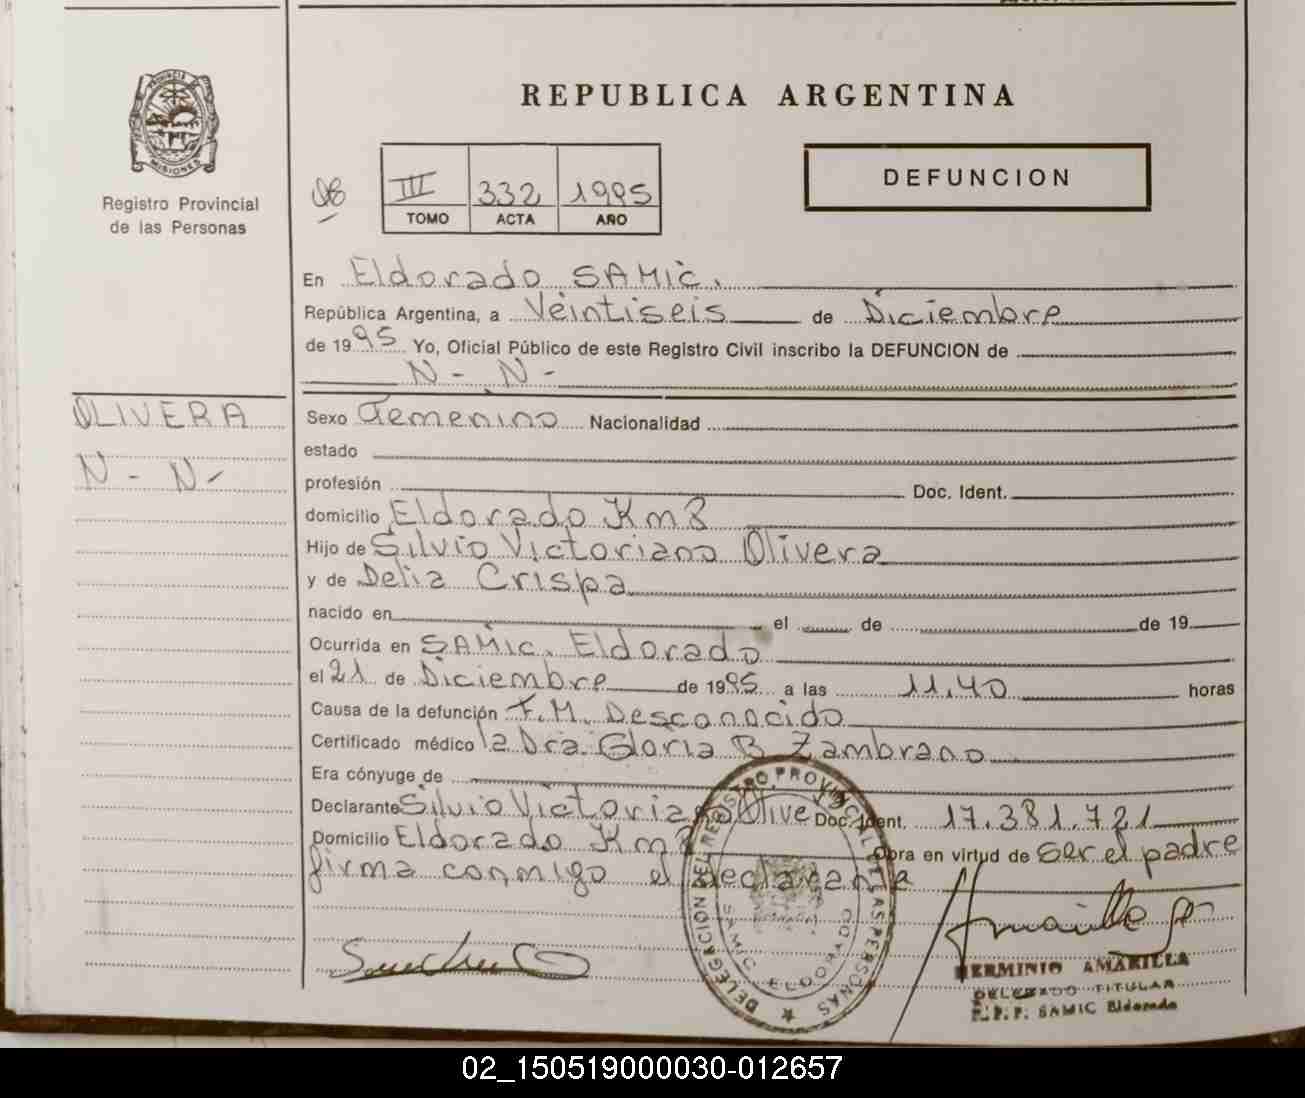 REPUBLICA ARGENTINA
PROVINCIA DE MISIONES
Registro Provincial
de las Personas
III 332 1995
TOMO ACTA AÑO
DEFUNCION
En Eldorado SAMIC.
República Argentina, a Veintiseis de Diciembre
de 1995 Yo, Oficial Público de este Registro Civil inscribo la DEFUNCION de
N - N -
OLIVERA
N - N -
Sexo Femenino Nacionalidad
estado
profesión Doc. Ident.
domicilio Eldorado Km 8
Hijo de Silvio Victoriano Olivera
y de Delia Crispa
nacido en el de de 19
Ocurrida en SAMIC. Eldorado
el 21 de Diciembre de 1995 a las 11.40 horas
Causa de la defunción F.M. Desconocido
Certificado médico la Dra Gloria B Zambrano
Era cónyuge de
Declarante Silvio Victoriano Olive Doc. Ident. 17.381.721
Domicilio Eldorado Km 8 Obra en virtud de ser el padre
firma conmigo el declarante
DELEGACION DEL REGISTRO PROVINCIAL DE LAS PERSONAS
SAMIC ELDORADO
HERMINIO AMARILLA
DELEGADO TITULAR
R.P.P. SAMIC Eldorado
02_150519000030-012657